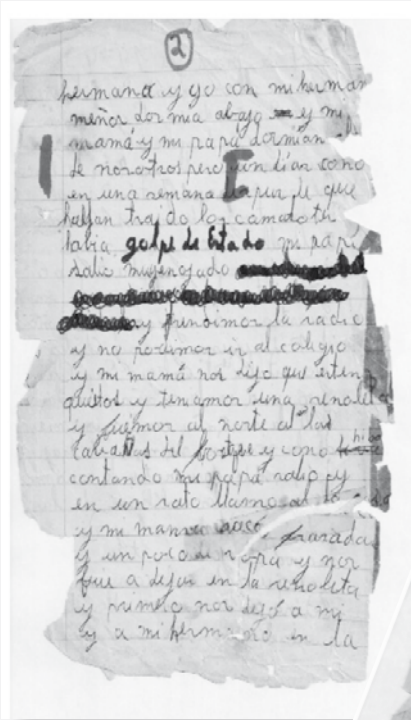 2
hermana y yo con mi herman
menor dormia abajo y mi
mamá y mi papá dormian
de nosotros pero un dia como
en una semana después de que
habian traido los camarotes
había golpe de Estado mi papá
salio muy enojado
y prendimos la radio
y no podiamos ir al colegio
y mi mamá nos dijo que esten
quietos y teniamos una renoleta
y fuimos al norte a las
cabañas del bosque y como
contando mi papá salio y
en un rato llamo
y mi mamá sacó frazada
y un poco de ropa y nos
fue a dejar en la renoleta
y primero nos dejó a mi
y a mi hermano en la